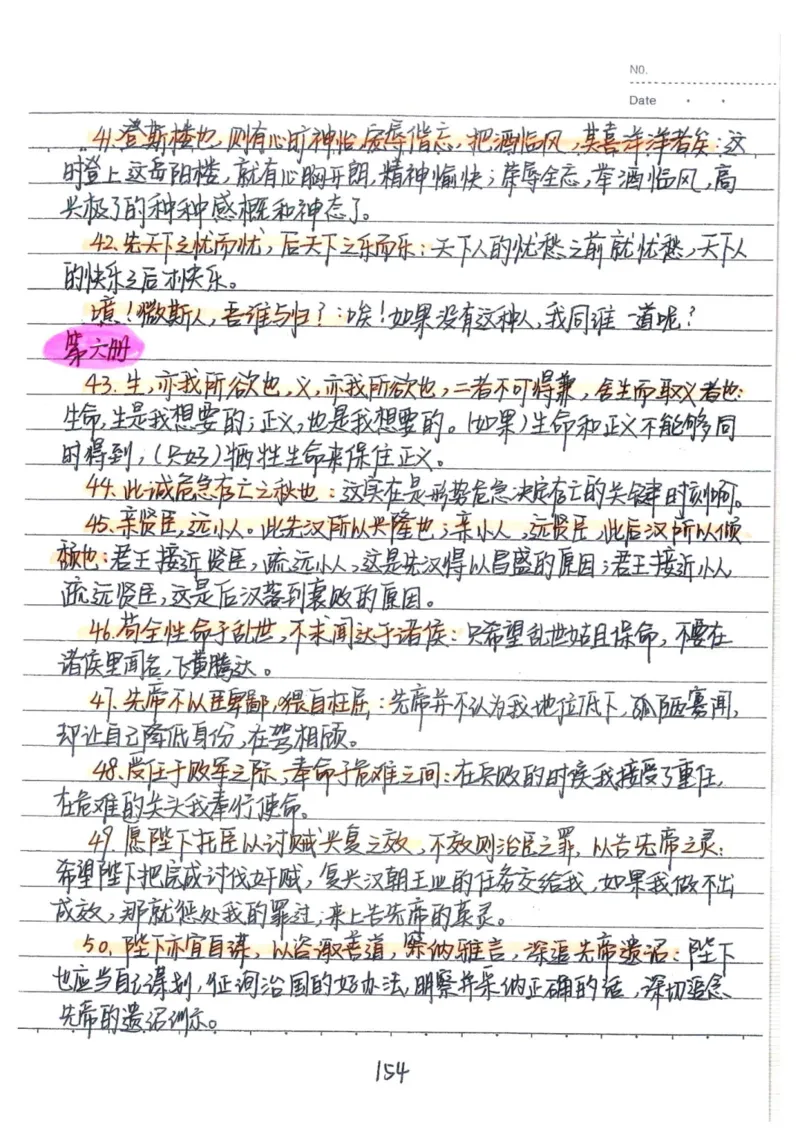 NO.
Date
41.登斯楼也,则有心旷神怡,宠辱偕忘,把酒临风,其喜洋洋者矣:这
时登上这岳阳楼,就有心胸开朗,精神愉快;荣辱全忘,举酒临风,高
兴极了的种种感概和神态了。
42.先天下之忧而忧,后天下之乐而乐:天下人的忧愁之前就忧愁,天下人
的快乐之后才快乐。
噫!微斯人,吾谁与归?:唉!如果没有这种人,我同谁一道呢?
第六册
43.生,亦我所欲也,义,亦我所欲也,二者不可得兼,舍生而取义者也:
生命,生是我想要的;正义,也是我想要的。(如果)生命和正义不能够同
时得到,(只好)牺牲生命来保住正义。
44.此诚危急存亡之秋也:这实在是形势危急决定存亡的关键时刻啊。
45.亲贤臣,远小人。此先汉所以兴隆也;亲小人,远贤臣,此后汉所以倾
颓也:君王接近贤臣,疏远小人,这是先汉得以昌盛的原因;君王接近小人
疏远贤臣,这是后汉落到衰败的原因。
46.苟全性命于乱世,不求闻达于诸侯:只希望乱世姑且保命,不要在
诸侯里闻名,飞黄腾达。
47.先帝不以臣卑鄙,猥自枉屈:先帝并不认为我地位低下,孤陋寡闻,
却让自己降低身份,在驾相顾。
48.受任于败军之际,奉命于危难之间:在兵败的时候我接受了重任,
在危难的关头我奉行使命。
49.愿陛下托臣以讨贼兴复之效,不效则治臣之罪,以告先帝之灵:
希望陛下把完成讨伐奸贼,复兴汉朝王业的任务交给我,如果我做不出
成效,那就惩处我的罪过,来上告先帝的英灵。
50.陛下亦宜自谋,以咨诹善道,察纳雅言,深追先帝遗诏:陛下
也应当自己谋划,征询治国的好办法,明察并采纳正确的话,深切追念
先帝的遗诏训示。
154